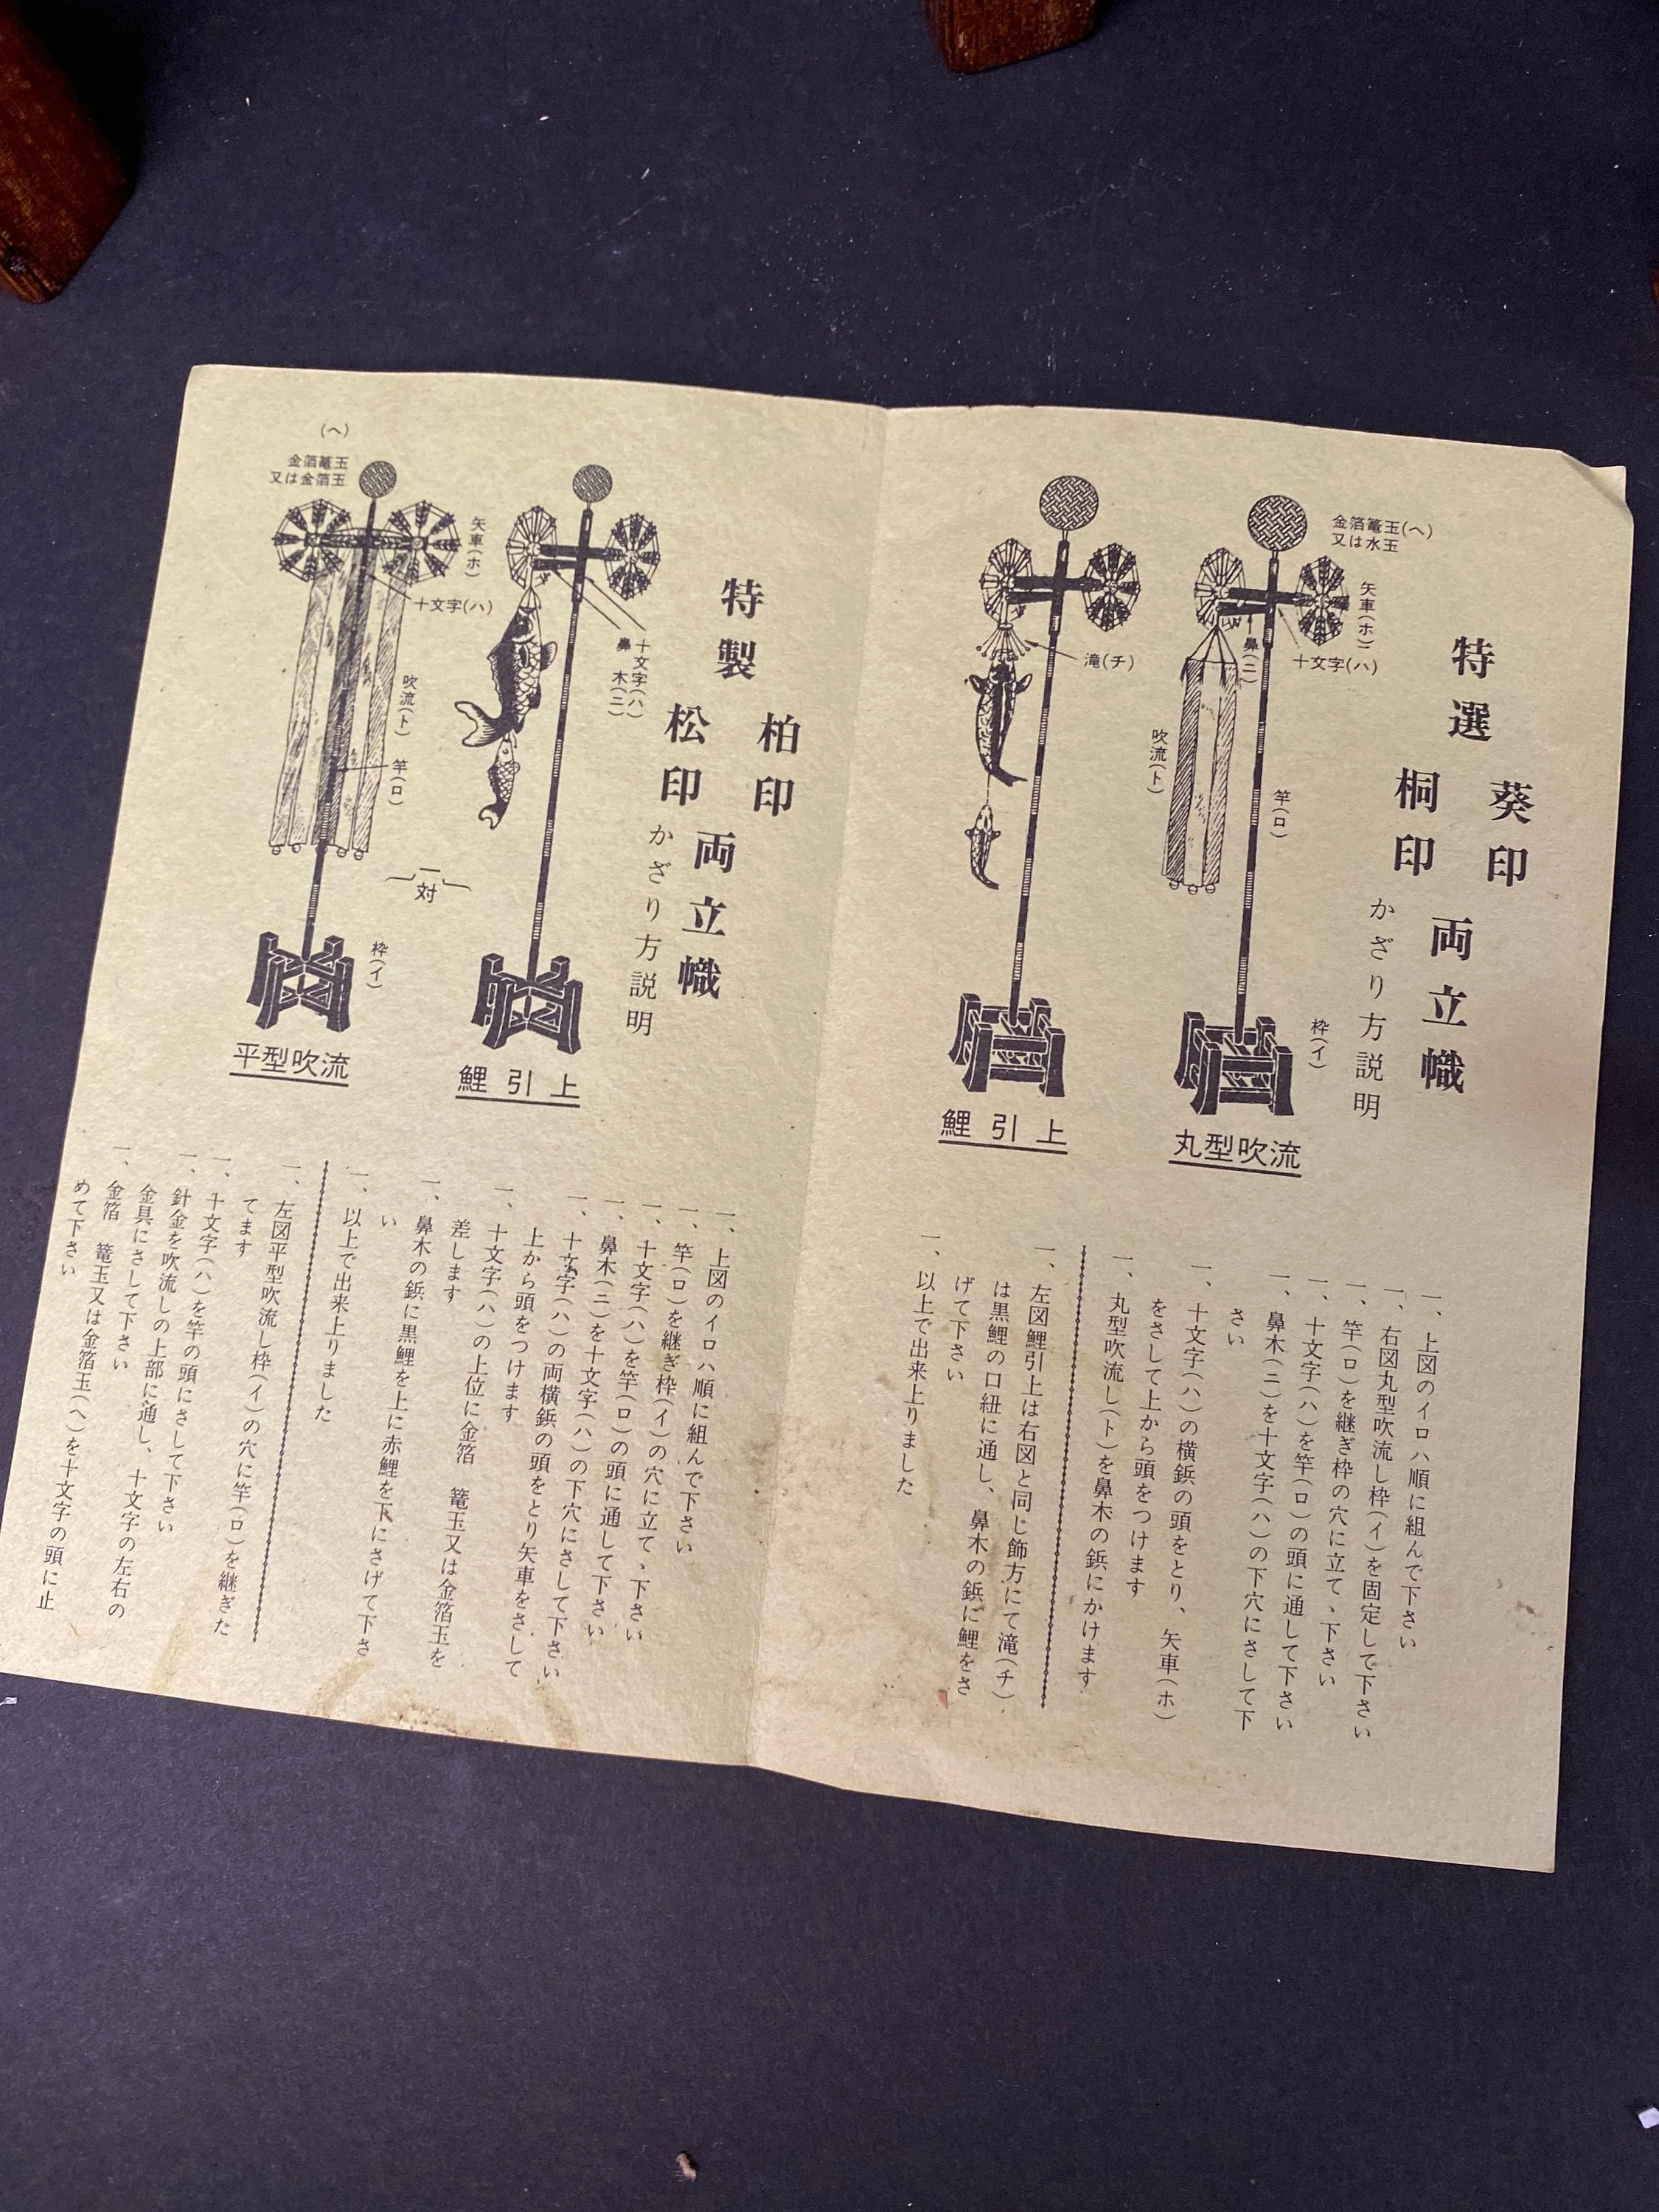 特選
葵印
桐印
両立幟
かざり方説明
金箔篭玉(ヘ)
又は水玉
矢車(ホ)
十文字(ハ)
鼻(ニ)
吹流(ト)
竿(ロ)
枠(イ)
丸型吹流
滝(チ)
鯉引上
一、上図のイロハ順に組んで下さい
一、右図丸型吹流し枠(イ)を固定して下さい
一、竿(ロ)を継ぎ枠の穴に立てゝ下さい
一、十文字(ハ)を竿(ロ)の頭に通して下さい
一、鼻木(ニ)を十文字(ハ)の下穴にさして下
さい
一、十文字(ハ)の横鋲の頭をとり、矢車(ホ)
をさして上から頭をつけます
一、丸型吹流し(ト)を鼻木の鋲にかけます
一、左図鯉引上は右図と同じ飾方にて滝(チ)
は黒鯉の口紐に通し、鼻木の鋲に鯉をさ
げて下さい
一、以上で出来上りました
特製
柏印
松印
両立幟
かざり方説明
十文字(ハ)
鼻木(ニ)
鯉引上
(ヘ)
金箔篭玉
又は金箔玉
矢車(ホ)
十文字(ハ)
吹流(ト)
竿(ロ)
一対
枠(イ)
平型吹流
一、上図のイロハ順に組んで下さい
一、竿(ロ)を継ぎ枠(イ)の穴に立てゝ下さい
一、十文字(ハ)を竿(ロ)の頭に通して下さい
一、鼻木(ニ)を十文字(ハ)の下穴にさして下さい
一、十文字(ハ)の両横鋲の頭をとり矢車をさして
上から頭をつけます
一、十文字(ハ)の上位に金箔 篭玉又は金箔玉を
差します
一、鼻木の鋲に黒鯉を上に赤鯉を下にさげて下さ
い
一、以上で出来上りました
一、左図平型吹流し枠(イ)の穴に竿(ロ)を継ぎた
てます
一、十文字(ハ)を竿の頭にさして下さい
一、針金を吹流しの上部に通し、十文字の左右の
金具にさして下さい
一、金箔 篭玉又は金箔玉(ヘ)を十文字の頭に止
めて下さい